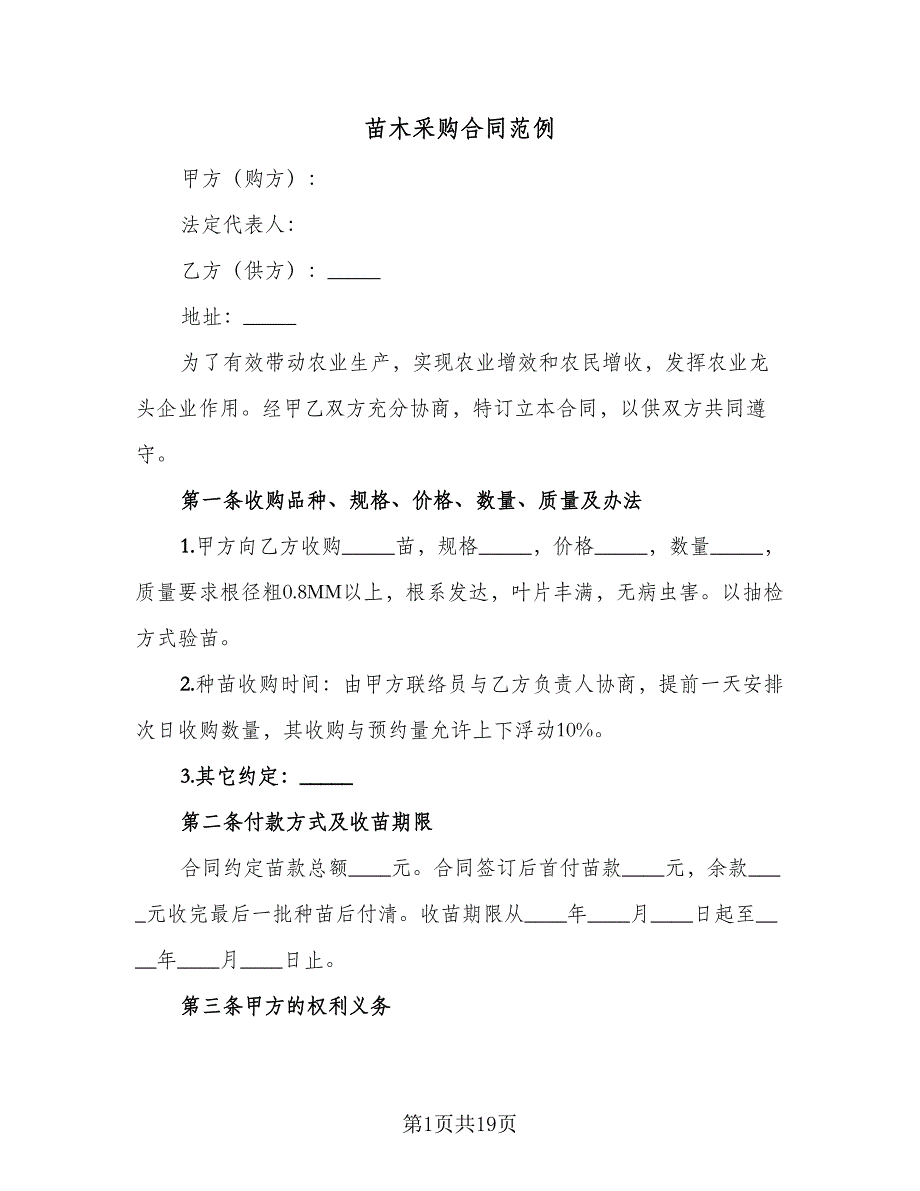 苗木采购合同范例
甲方（购方）：
法定代表人：
乙方（供方）：_____
地址：_____
为了有效带动农业生产，实现农业增效和农民增收，发挥农业龙
头企业作用。经甲乙双方充分协商，特订立本合同，以供双方共同遵
守。
第一条收购品种、规格、价格、数量、质量及办法
1.甲方向乙方收购_____苗，规格_____，价格_____，数量_____，
质量要求根径粗0.8MM以上，根系发达，叶片丰满，无病虫害。以抽检
方式验苗。
2.种苗收购时间：由甲方联络员与乙方负责人协商，提前一天安排
次日收购数量，其收购与预约量允许上下浮动10%。
3.其它约定：_____
第二条付款方式及收苗期限
合同约定苗款总额____元。合同签订后首付苗款____元，余款___
_元收完最后一批种苗后付清。收苗期限从____年____月____日起至__
__年____月____日止。
第三条甲方的权利义务
第1页共19页